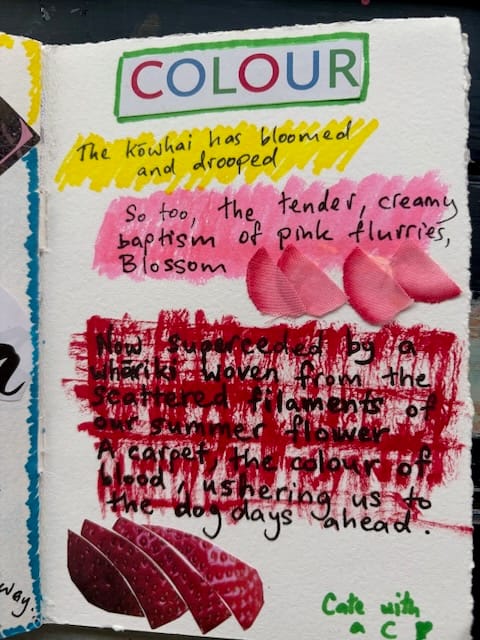 COLOUR
The kōwhai has bloomed
and drooped
So too, the tender, creamy
baptism of pink flurries,
Blossom
Now superceded by a
whāriki woven from the
scattered filaments of
our summer flower
A carpet, the colour of
blood, ushering us to
the dog days ahead.
way.
Cate with
a C ♥